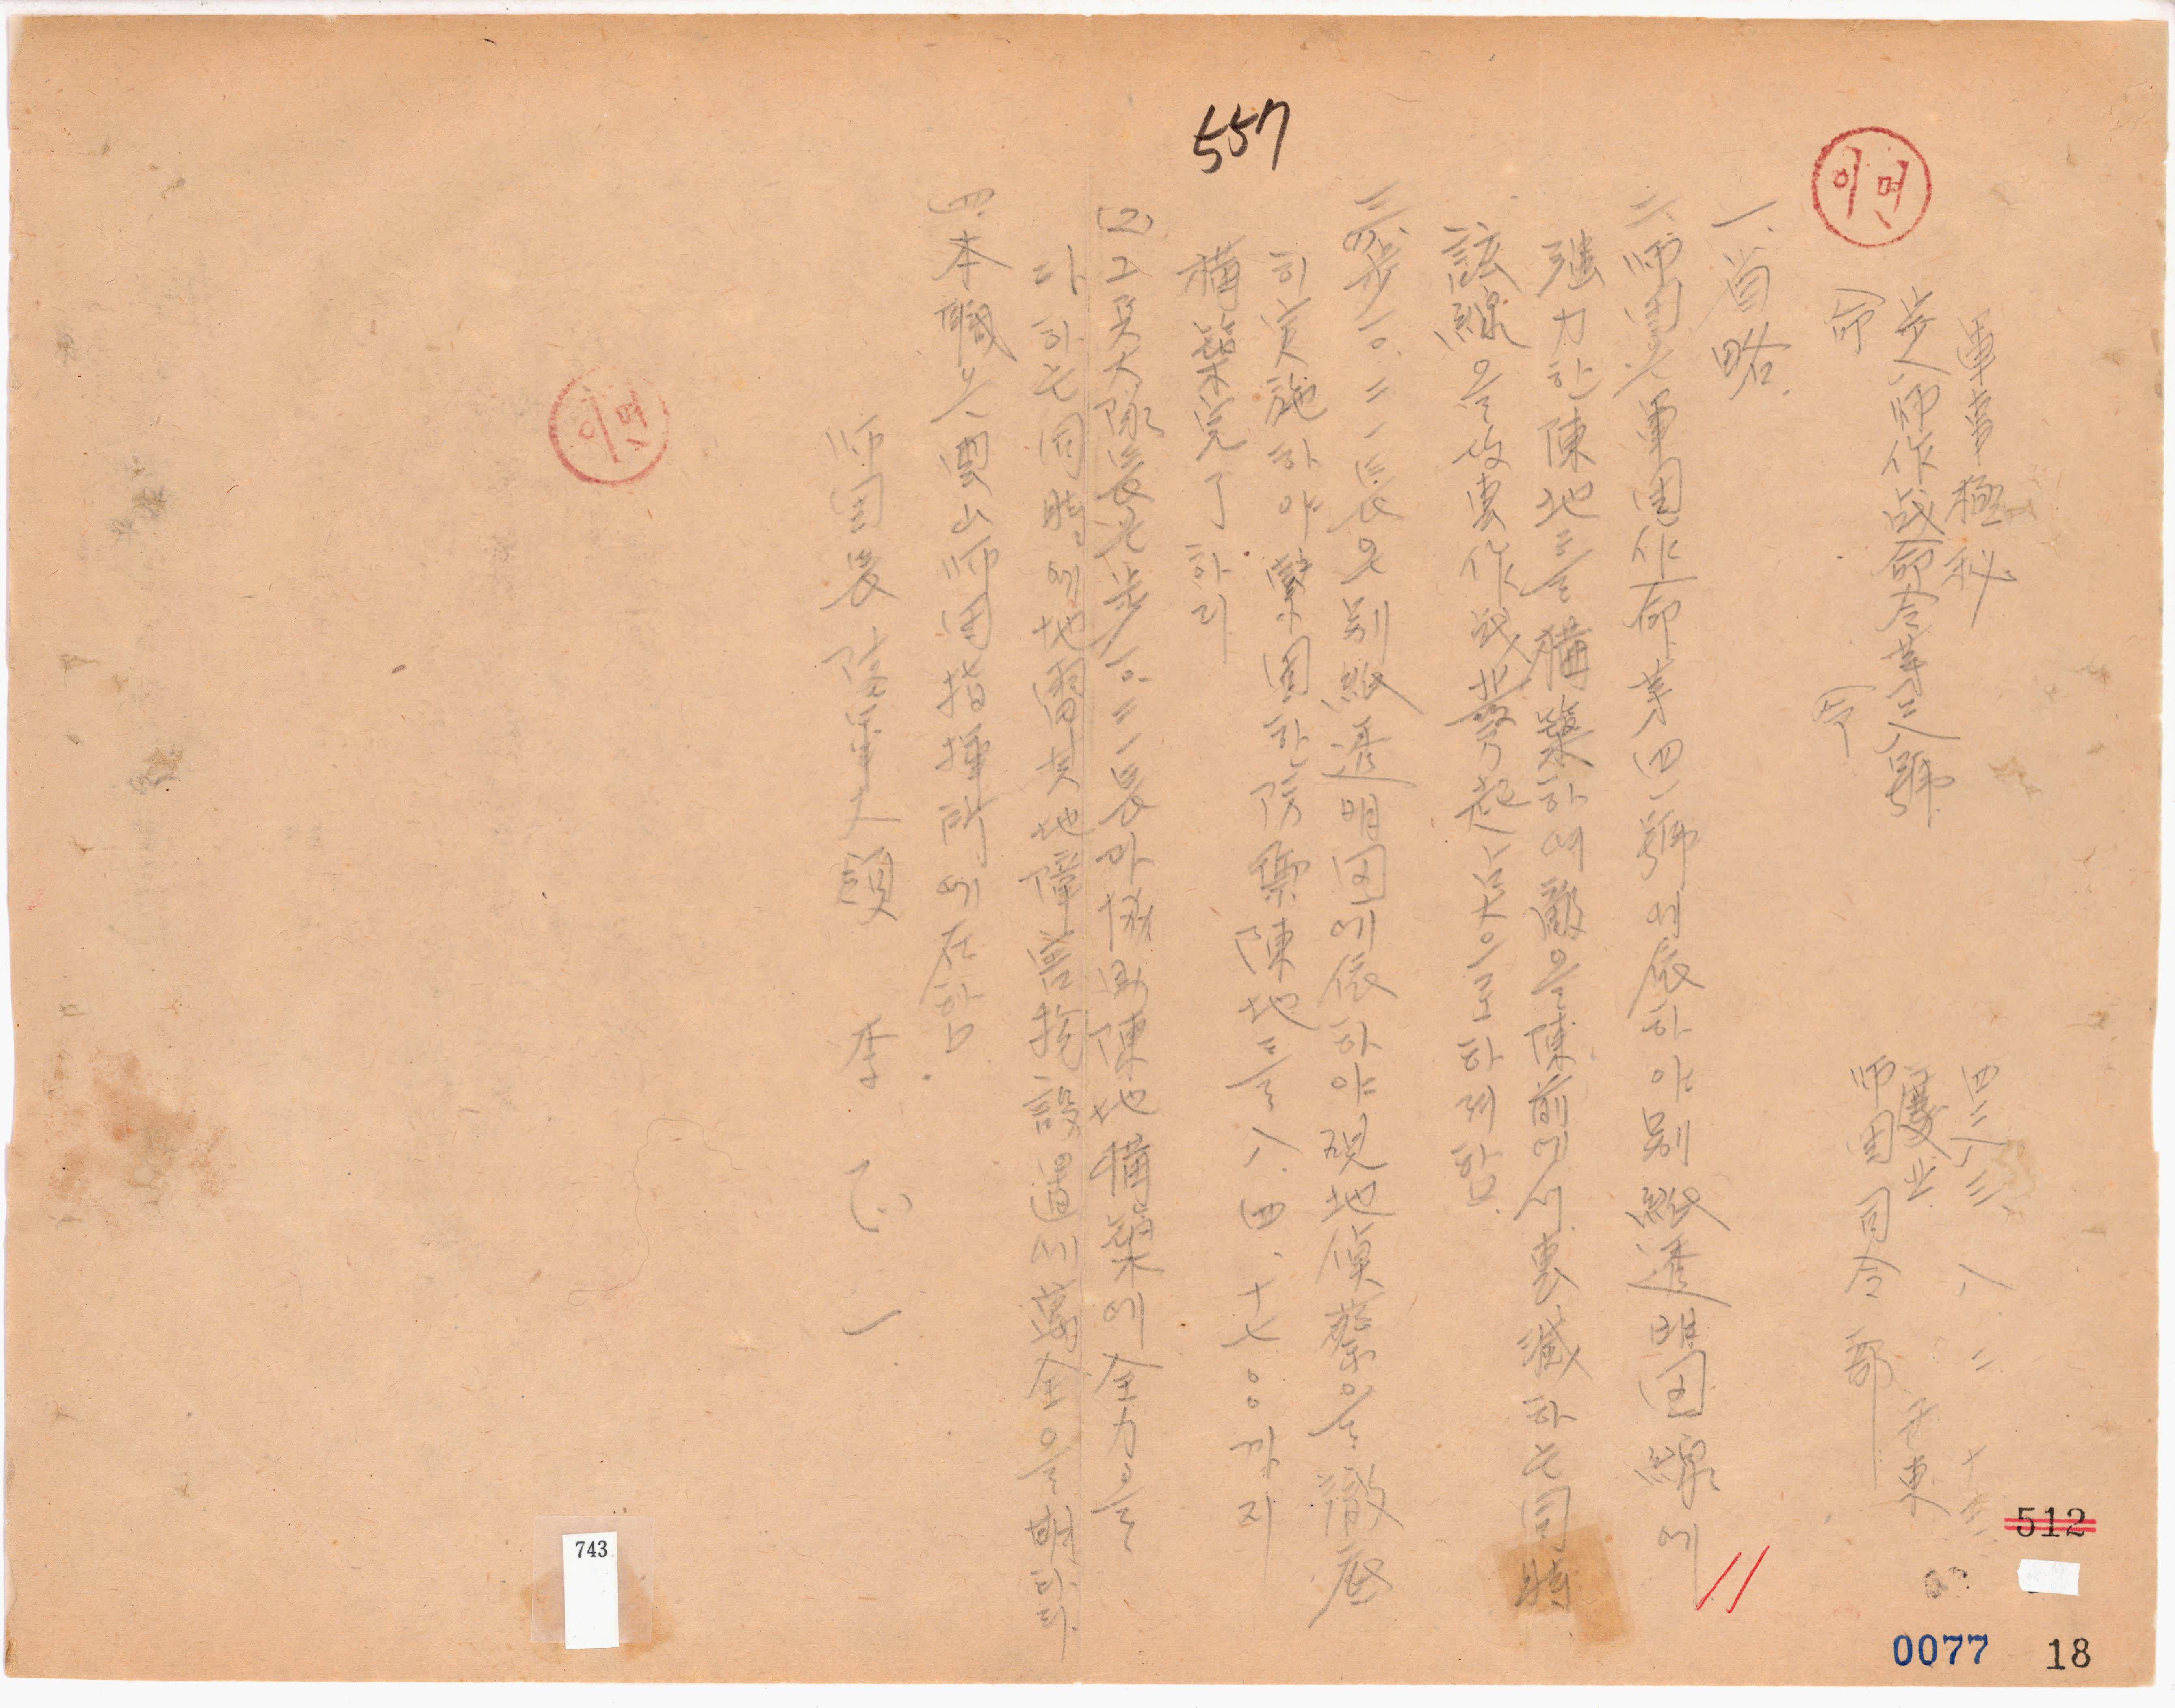 軍事極秘
步八師作战命令第三八號
四二八三、八、二 十三
安東
師團司令部
命 令
一、省略
二、師團은 軍團作命 第四一號에 依하야 別紙透明図線에
强力한 陳地를 構築하여 敵을 陳前에서 裏滅하는 同時
該線을 攻勢作戰 発起点으로 하려 함
三、(1)步一〇、二一長은 別紙透明図에 依하야 現地偵察을 徹底
히 実施하야 鞏固한 防禦陳地를 八、四、十七〇〇까지
構築完了하라
(2)工兵大隊長은 步一〇、二一長과 協助 陳地構築에 全力을
다하는 同時에 地雷其他 障害物 設置에 萬全을 期하라
四、本職은 豊山 師団指揮所에 在함
師団長 陸軍大領 李 正 一
이면
이면
557
512
0077
18
743